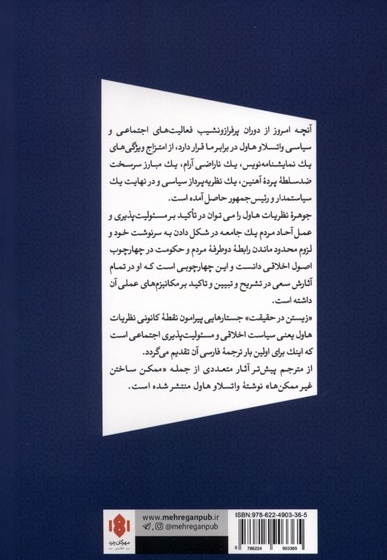 آنچه امروز از دوران پرفرازونشیب فعالیت‌های اجتماعی و
سیاسی واتسلاو هاول در برابر ما قرار دارد، از امتزاج ویژگی‌های
یک نمایشنامه‌نویس، یک ناراضی آرام، یک مبارز سرسخت
ضدسلطهٔ پردهٔ آهنین، یک نظریه‌پرداز سیاسی و در نهایت یک
سیاستمدار و رئیس‌جمهور حاصل آمده است.
جوهرهٔ نظریات هاول را می توان در تأکید بر مسئولیت‌پذیری و
عمل آحاد مردم یک جامعه در شکل دادن به سرنوشت خود و
لزوم محدود ماندن رابطهٔ دوطرفهٔ مردم و حکومت در چهارچوب
اصول اخلاقی دانست و این چهارچوبی است که او در تمام
آثارش سعی در تشریح و تبیین و تاکید بر مکانیزم‌های عملی آن
داشته است.
«زیستن در حقیقت» جستارهایی پیرامون نقطهٔ کانونی نظریات
هاول یعنی سیاست اخلاقی و مسئولیت‌پذیری اجتماعی است
که اینک برای اولین بار ترجمهٔ فارسی آن تقدیم می‌گردد.
از مترجم پیش‌تر آثار متعددی از جمله «ممکن ساختن
غیر ممکن‌ها» نوشتهٔ واتسلاو هاول منتشر شده است.
ISBN:978-622-4903-36-5
9 786224 903365
www.mehreganpub.ir
@mehreganpub